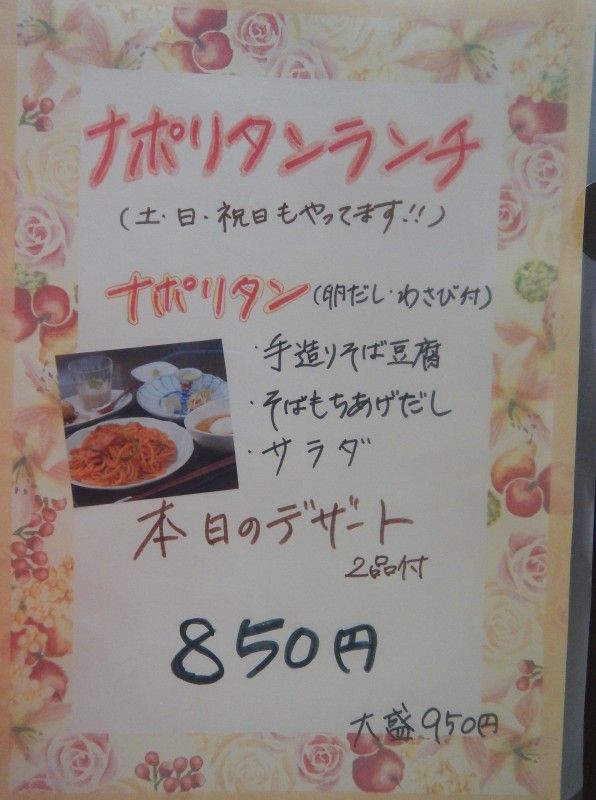 ナポリタンランチ
(土・日・祝日もやってます!!)
ナポリタン(卵だし・わさび付)
・手造りそば豆腐
・そばもちあげだし
・サラダ
本日のデザート
2品付
850円
大盛950円